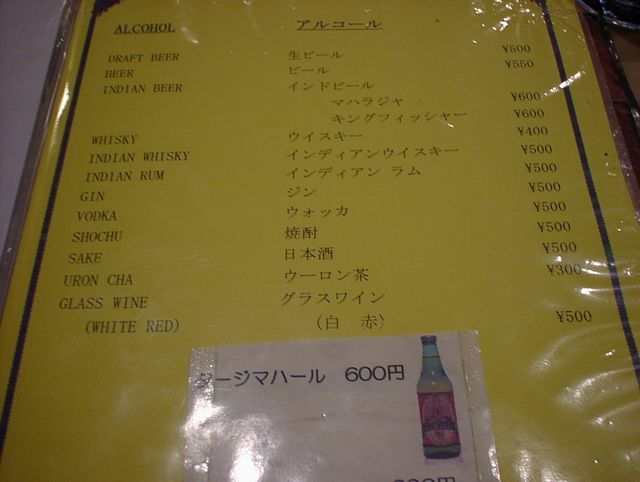 ALCOHOL アルコール
DRAFT BEER 生ビール ¥500
BEER ビール ¥550
INDIAN BEER インドビール
マハラジャ ¥600
キングフィッシャー ¥600
WHISKY ウイスキー ¥400
INDIAN WHISKY インディアンウイスキー ¥500
INDIAN RUM インディアン ラム ¥500
GIN ジン ¥500
VODKA ウォッカ ¥500
SHOCHU 焼酎 ¥500
SAKE 日本酒 ¥500
URON CHA ウーロン茶 ¥300
GLASS WINE グラスワイン
(WHITE RED) (白 赤) ¥500
タージマハール 600円